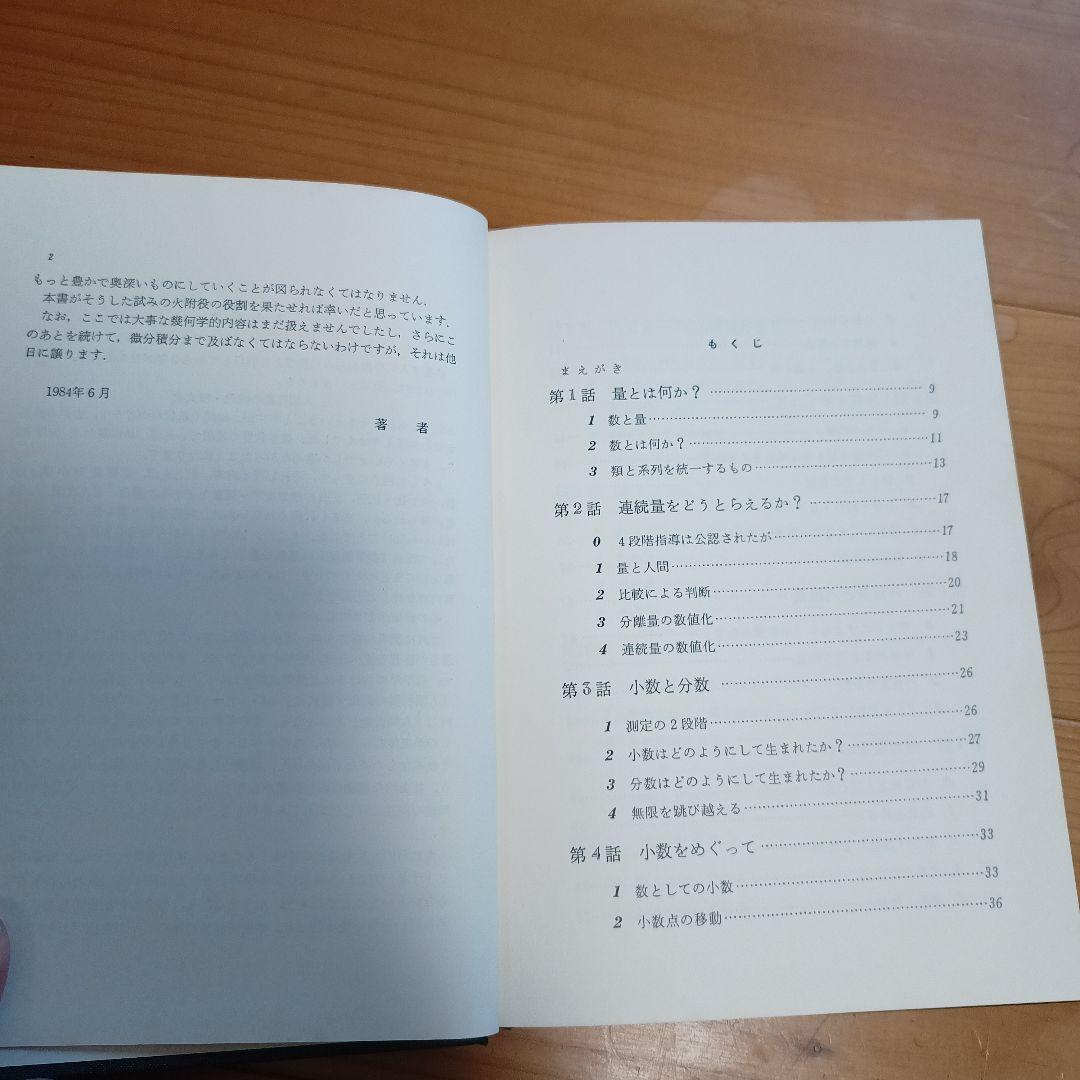 2
もっと豊かで奥深いものにしていくことが図られなくてはなりません.
本書がそうした試みの火附役の役割を果たせれば幸いだと思っています.
なお, ここでは大事な幾何学的内容はまだ扱えませんでしたし, さらにこ
のあとを続けて, 微分積分まで及ばなくてはならないわけですが, それは他
日に譲ります.
1984年6月
著 者
もくじ
まえがき
第1話 量とは何か？……………………………… 9
1 数と量……………………………… 9
2 数とは何か？……………………………… 11
3 類と系列を統一するもの……………………………… 13
第2話 連続量をどうとらえるか？……………………………… 17
0 4段階指導は公認されたが……………………………… 17
1 量と人間……………………………… 18
2 比較による判断……………………………… 20
3 分離量の数値化……………………………… 21
4 連続量の数値化……………………………… 23
第3話 小数と分数……………………………… 26
1 測定の2段階……………………………… 26
2 小数はどのようにして生まれたか？……………………………… 27
3 分数はどのようにして生まれたか？……………………………… 29
4 無限を跳び越える……………………………… 31
第4話 小数をめぐって……………………………… 33
1 数としての小数……………………………… 33
2 小数点の移動……………………………… 36